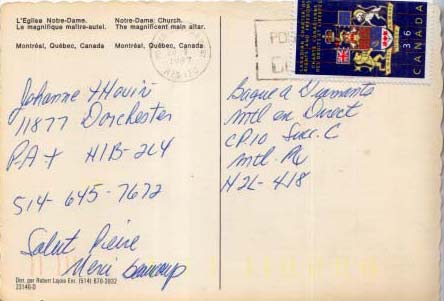 L'Eglise Notre-Dame.
Le magnifique maître-autel.
Montréal, Québec, Canada
Notre-Dame: Church.
The magnificent main altar.
Montréal, Québec, Canada
1987
CANADA 36
Johanne
11877 Dorchester
P.A.T H1B-2L4
514-645-7672
Salut Pierre
Merci beaucoup
Bague à Diamants
Mtl en Direct
CP.10 Succ. C
Mtl. Qc
H2L-4J8
Dist. par Robert Lajoie Enr. (514) 678-3832
23146-D